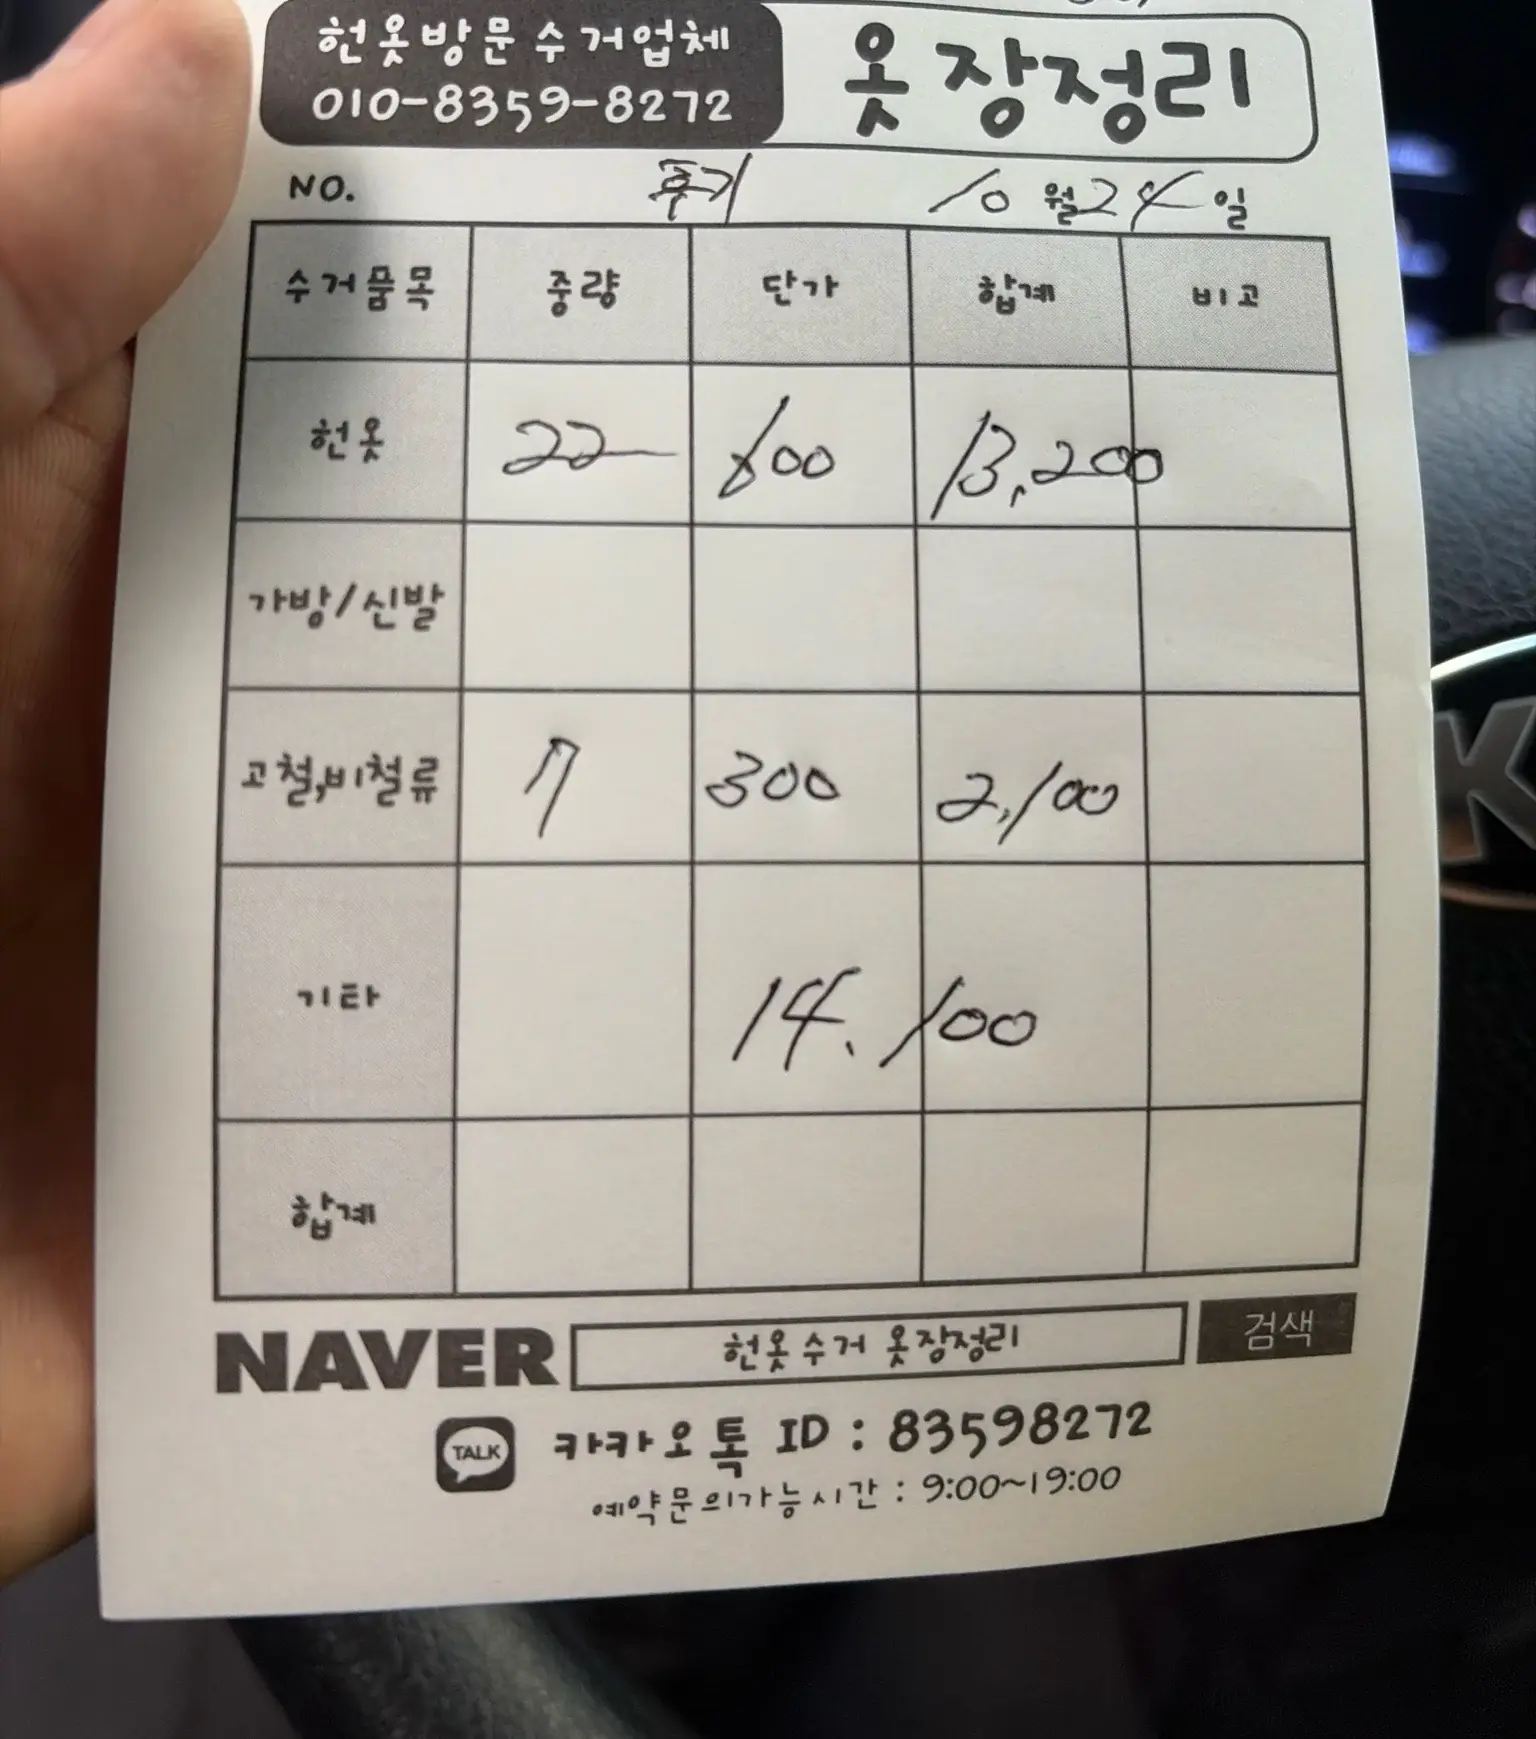 헌옷방문수거업체
010-8359-8272
옷장정리
NO. 10월 24일
수거품목 중량 단가 합계 비고
헌옷 22 600 13,200
가방/신발
고철,비철류 7 300 2,100
기타 14.100
합계
NAVER 헌옷수거 옷장정리 검색
TALK 카카오톡 ID : 83598272
예약문의가능시간 : 9:00~19:00